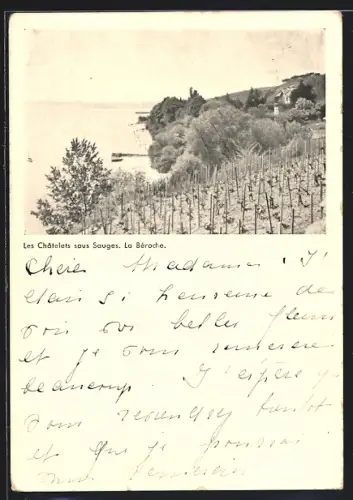 Les Châtelets sous Sauges. La Béroche.
Chère Madame. J'
étais si heureuse de
voir vos belles fleurs
et je vous remercie
beaucoup. J'espère q
vous reviendrez bientôt
et que je pourrai
vous